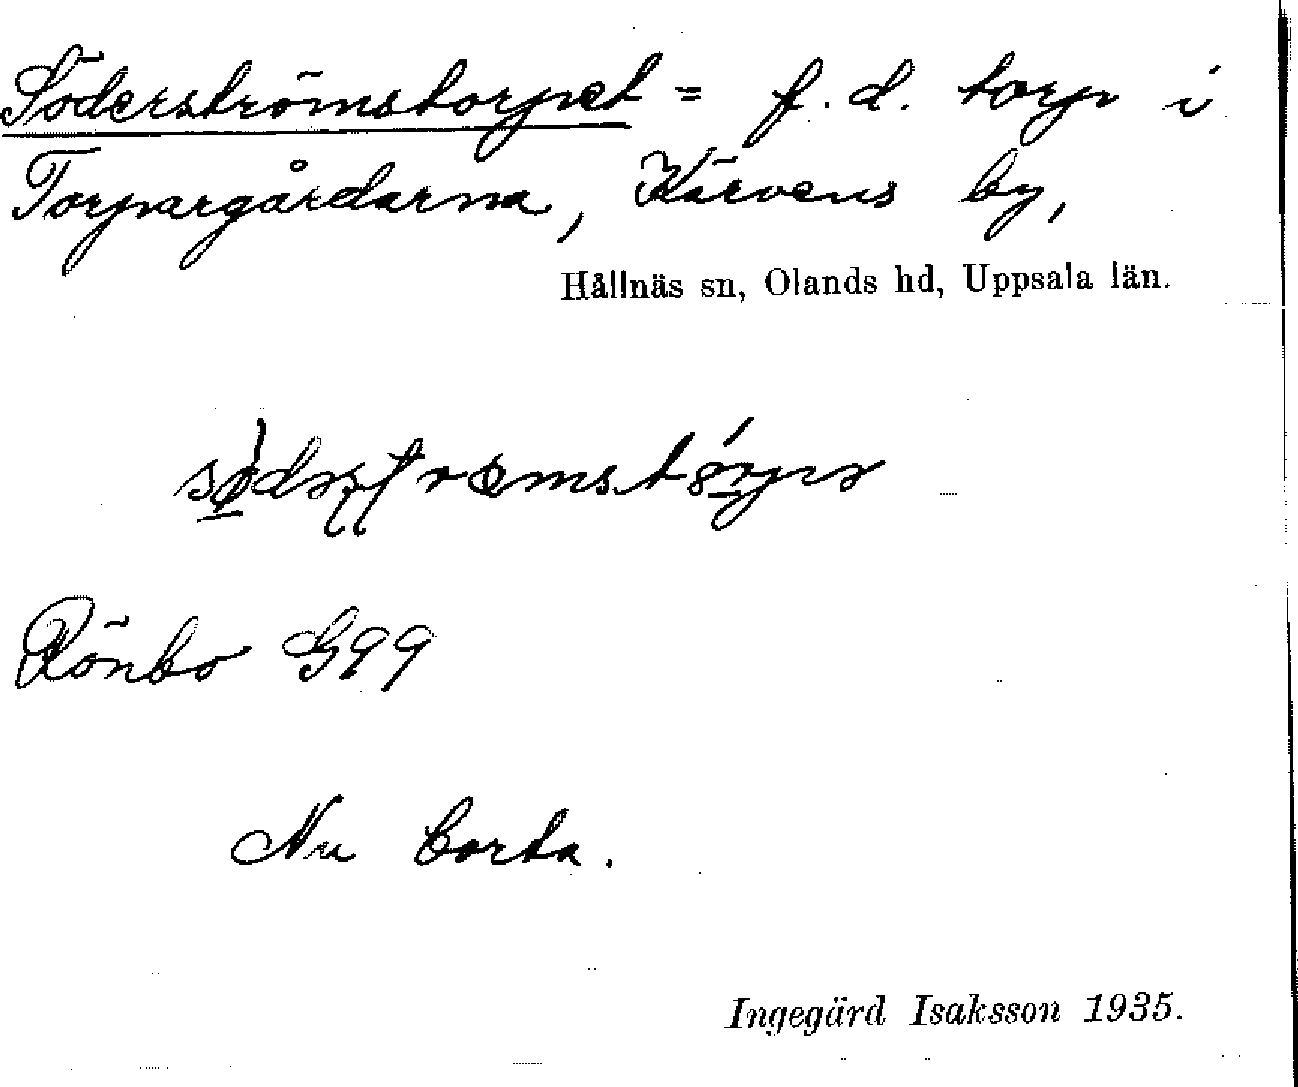 Söderströmstorpet = f.d. torp i
Torpargårdarna, Kärvens by,
Hållnäs sn, Olands hd, Uppsala län.
Rönbo G99
Nu borta.
Ingegärd Isaksson 1935.